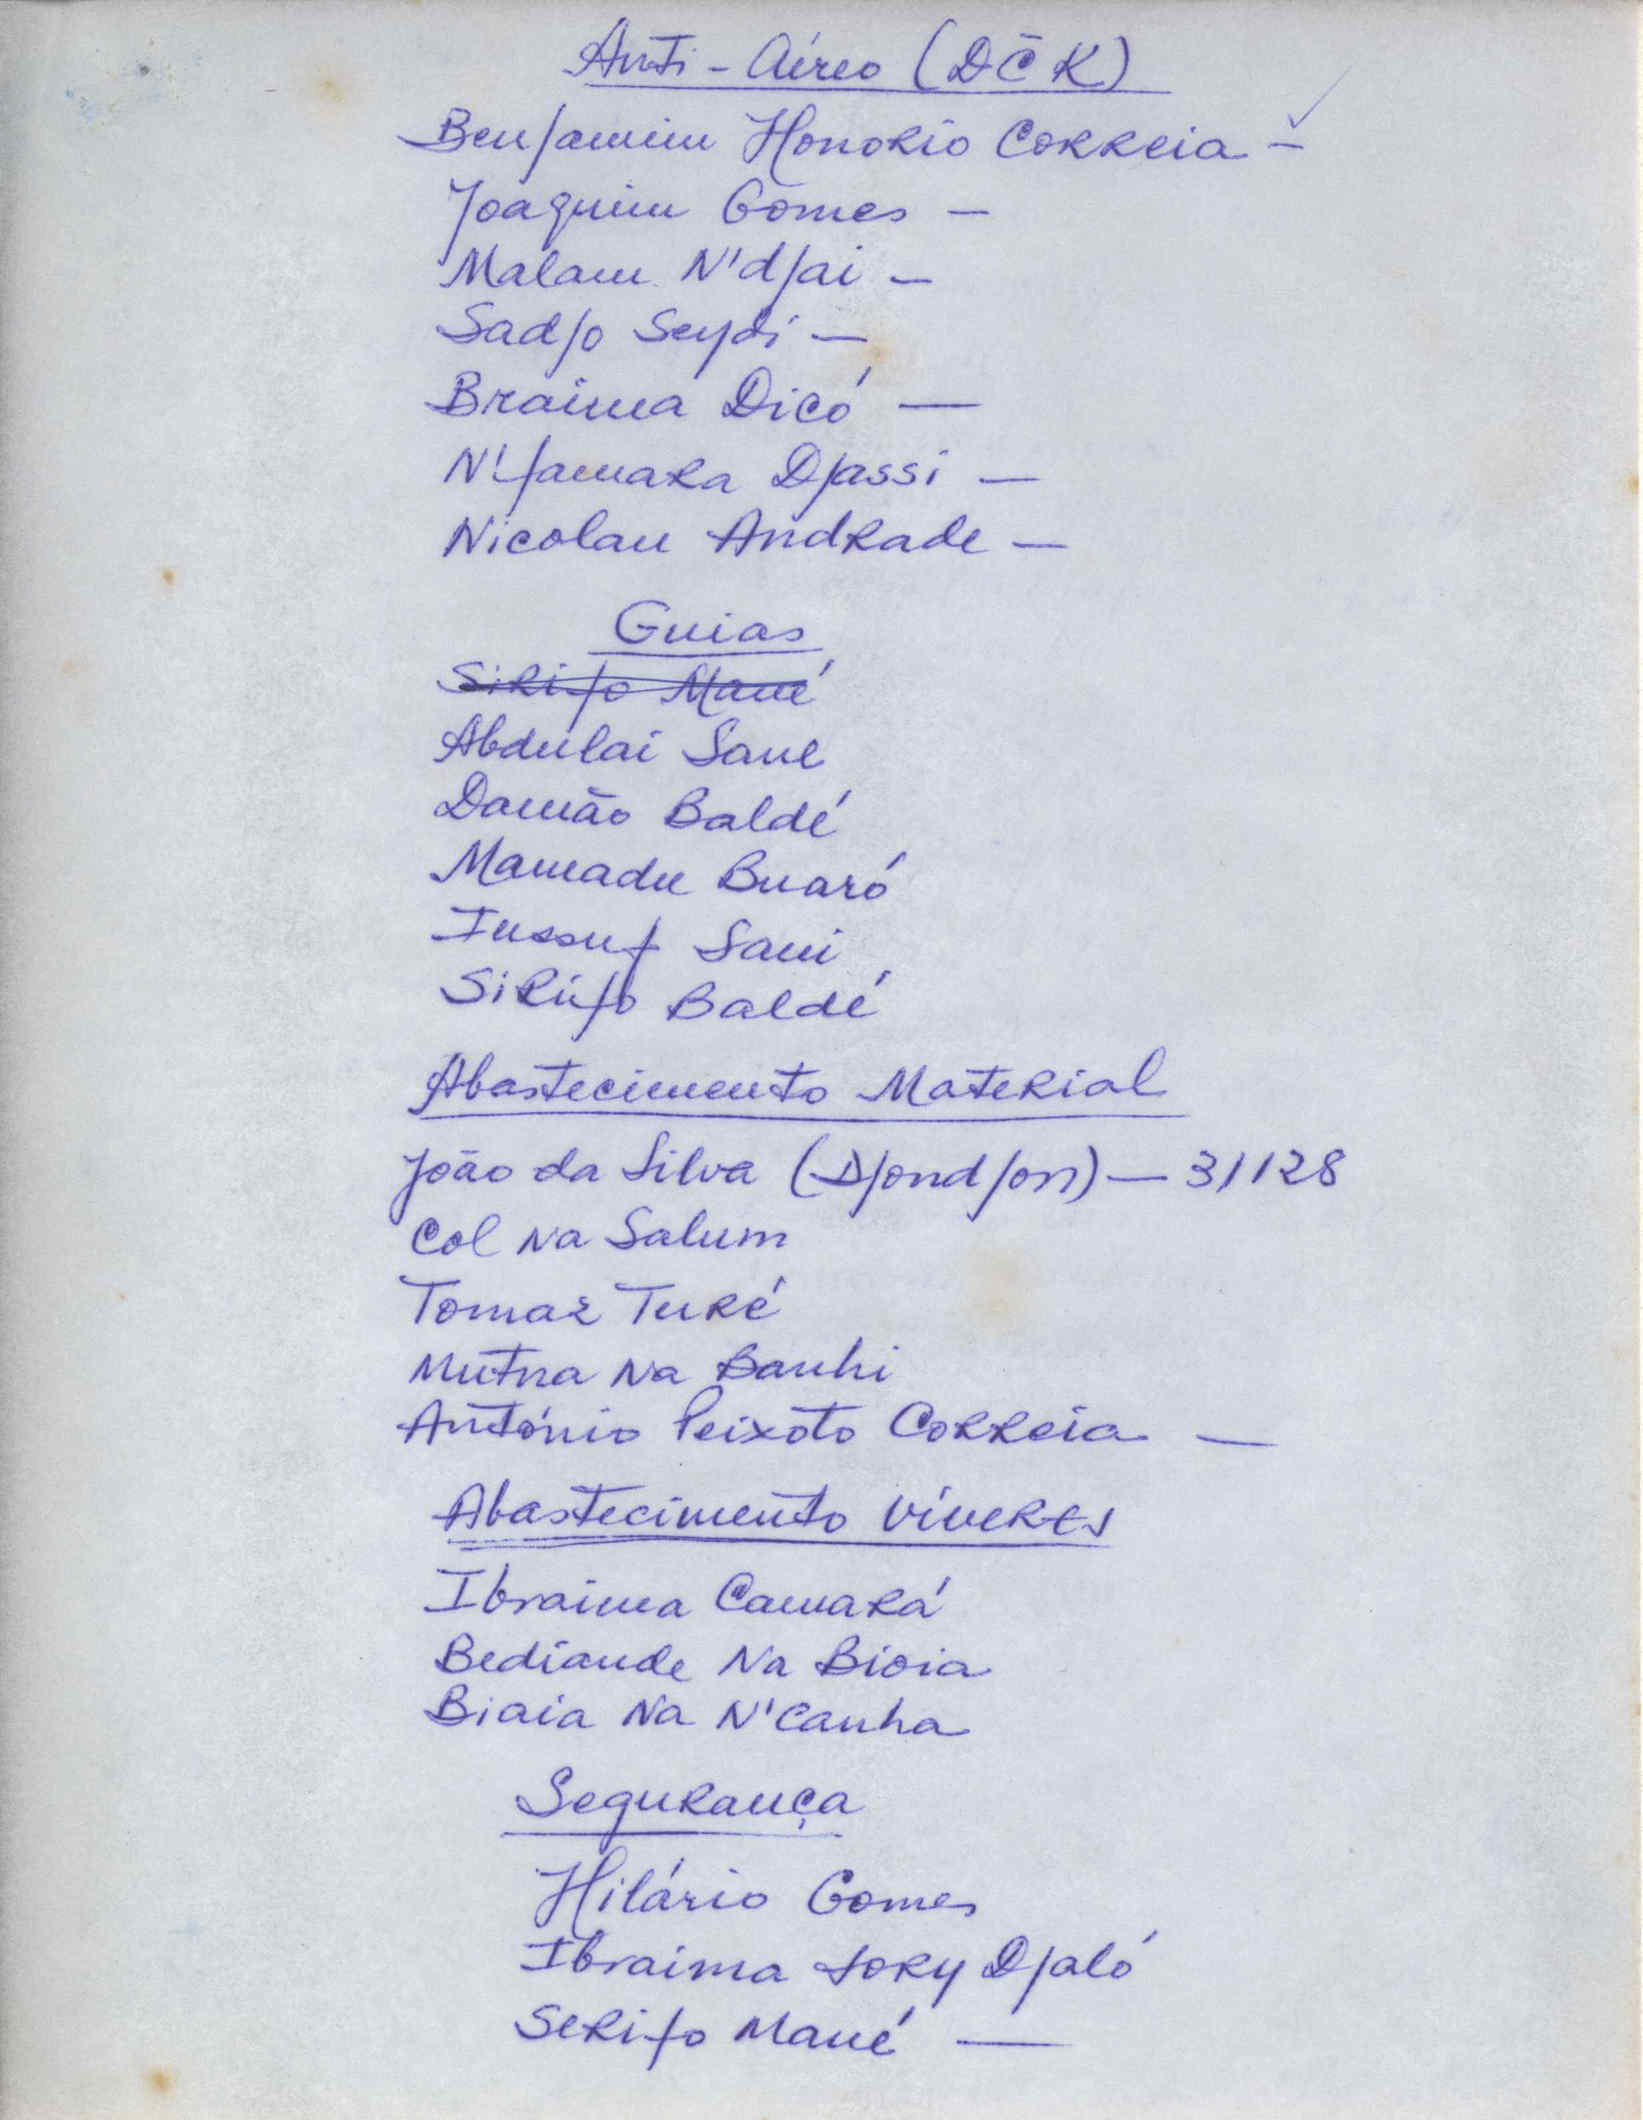 Anti-Aéreo (DČK)
Benjamim Honorio Correia - ✓
Joaquim Gomes -
Malam N'djai -
Sadjo Seydi -
Braima Dicó -
N'famara Djassi -
Nicolau Andrade -
Guias
Sirifo Mané
Abdulai Sane
Damão Baldé
Mamadu Buaró
Iussuf Sani
Sirifo Baldé
Abastecimento Material
João da Silva (Djondjon) - 31128
Col Na Salum
Tomaz Turé
Mutna Na Banhi
António Peixoto Correia -
Abastecimento víveres
Ibraima Camará
Bediande Na Bioia
Biaia Na N'Canha
Segurança
Hilário Gomes
Ibraima Sory Djaló
Serifo Mané -